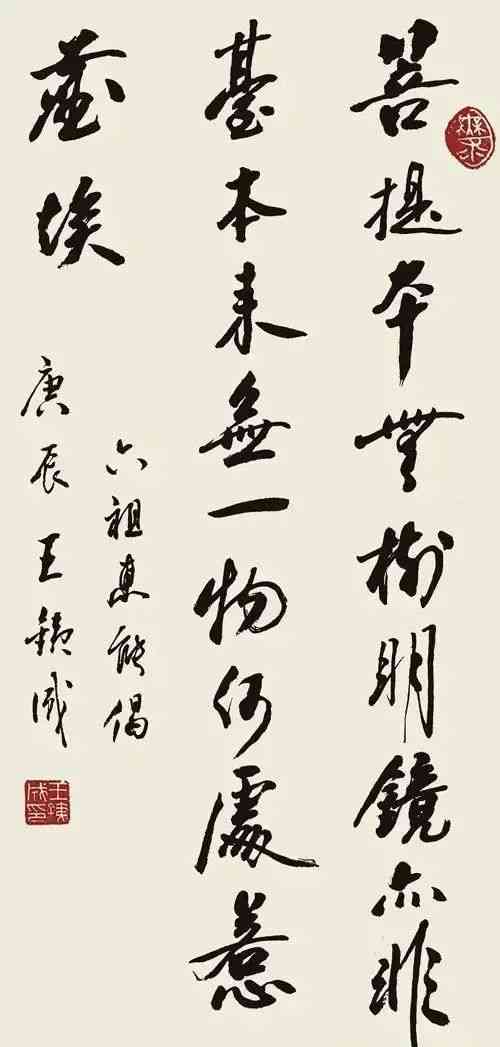 菩提本無樹明鏡亦非
臺本来無一物何處惹
塵埃
六祖惠能偈
庚辰王銕成
王鐵成印